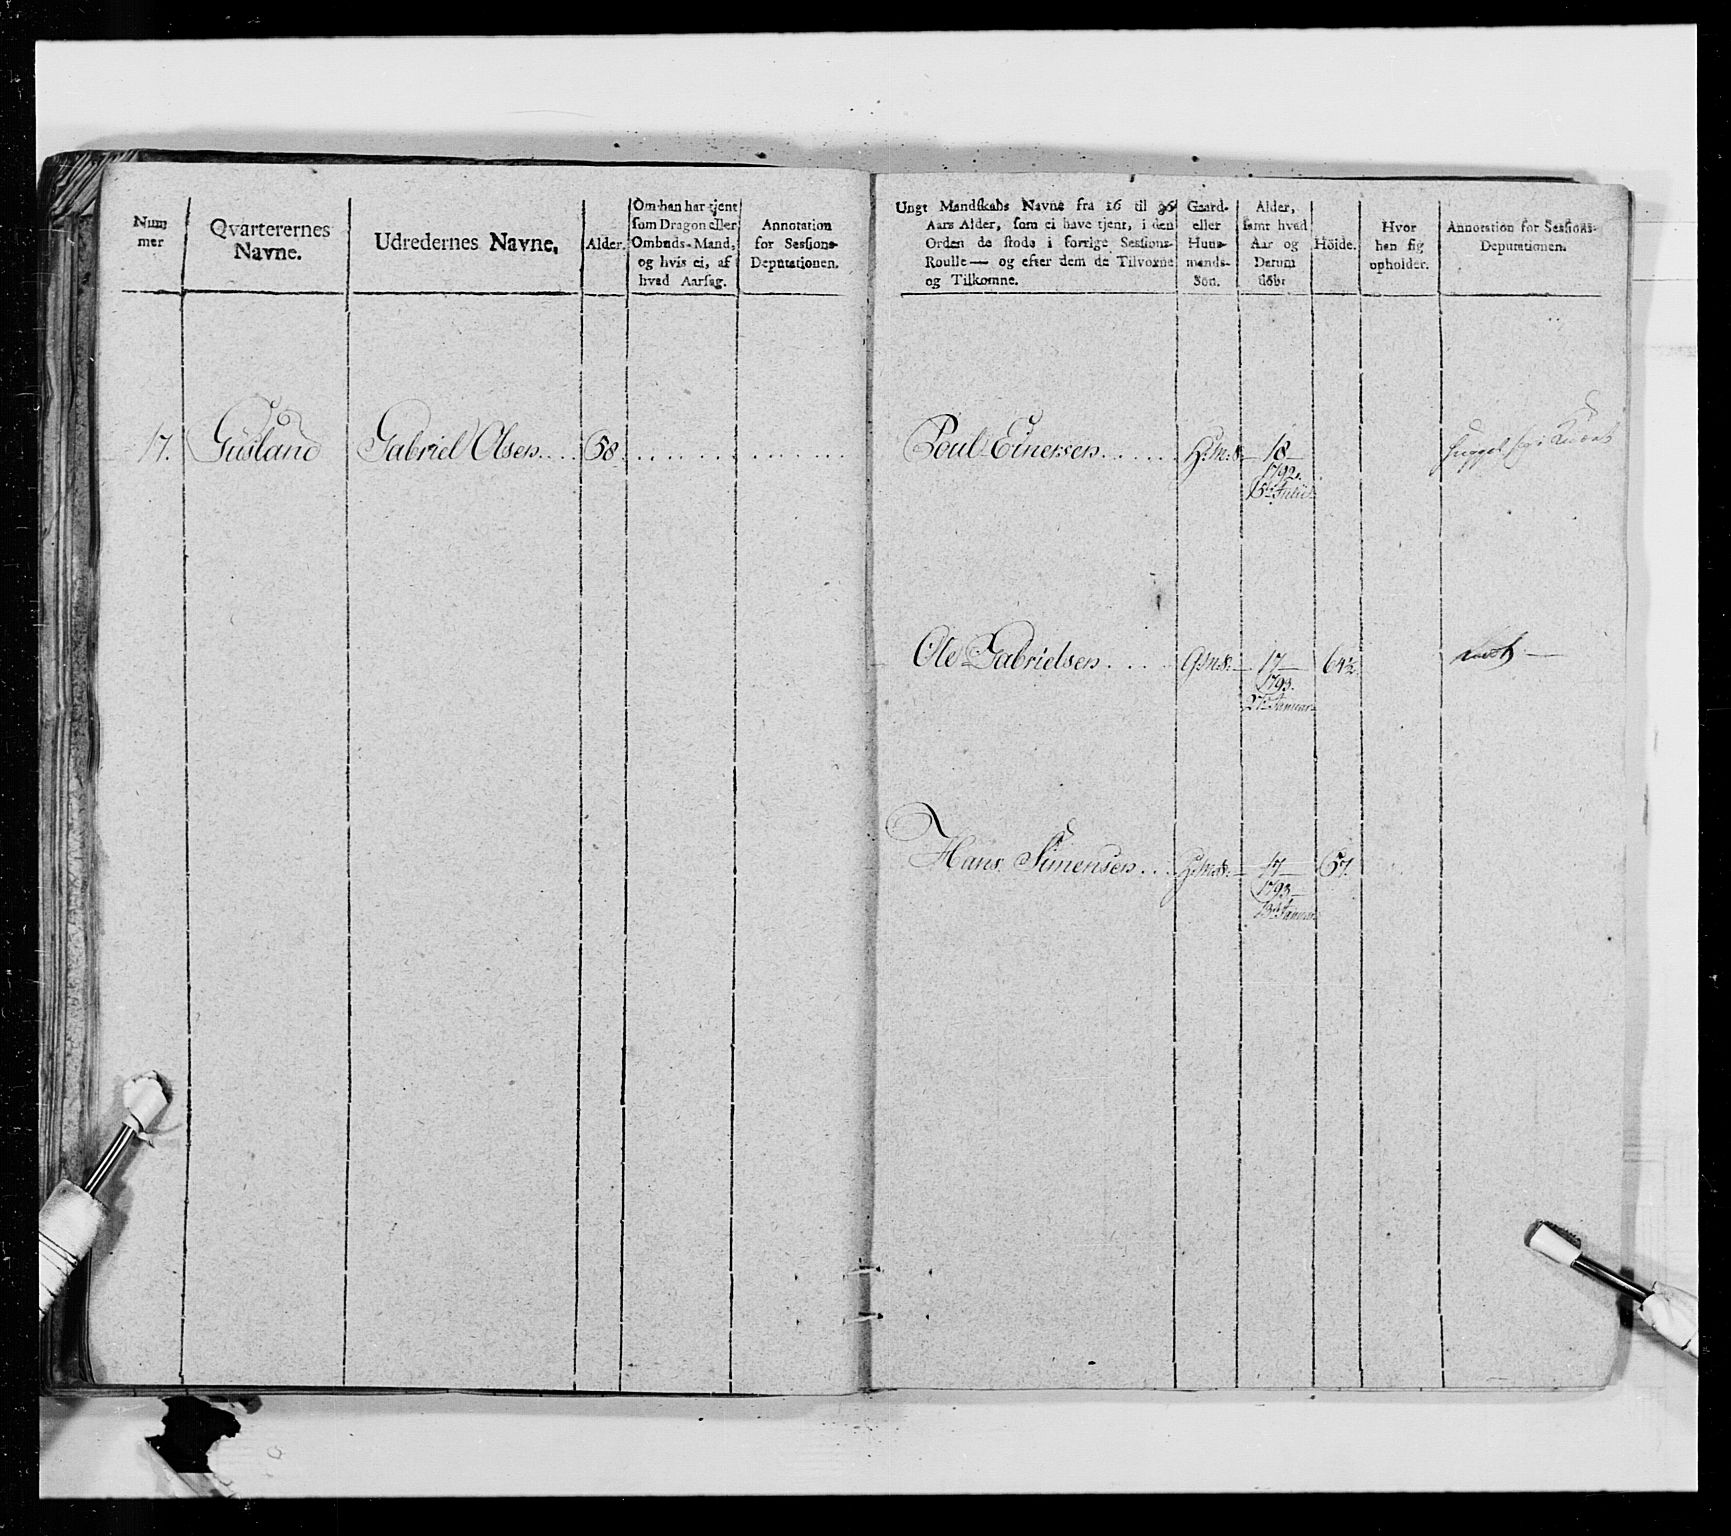 Num
mer
Qvarterernes
Navne.
Udredernes Navne,
Alder.
Om han har tjent
som Dragon eller
Ombuds-Mand,
og hvis ei, af
hvad Aarsag.
Annotation
for Sessions-
Deputationen.
Ungt Mandskabs Navne fra 16 til 36
Aars Alder, som ei have tjent, i den
Orden de stode i forrige Sessions-
Roulle — og efter dem de Tilvoxne
og Tilkomne.
Gaard-
eller
Huus-
mands-
Søn.
Alder,
samt hvad
Aar og
Datum
døbt
Höide.
Hvor
han sig
opholder.
Annotation for Sessions-
Deputationen.
17. Gusland Gabriel Olsen 58
Poul Einersen H:m:s: 18
1792.
15de Julii
Ole Gabrielsen G:m:s: 17 64½
1793.
27de Januar
Hans Simensen H:m:s: 17 57.
1793
13de Januar